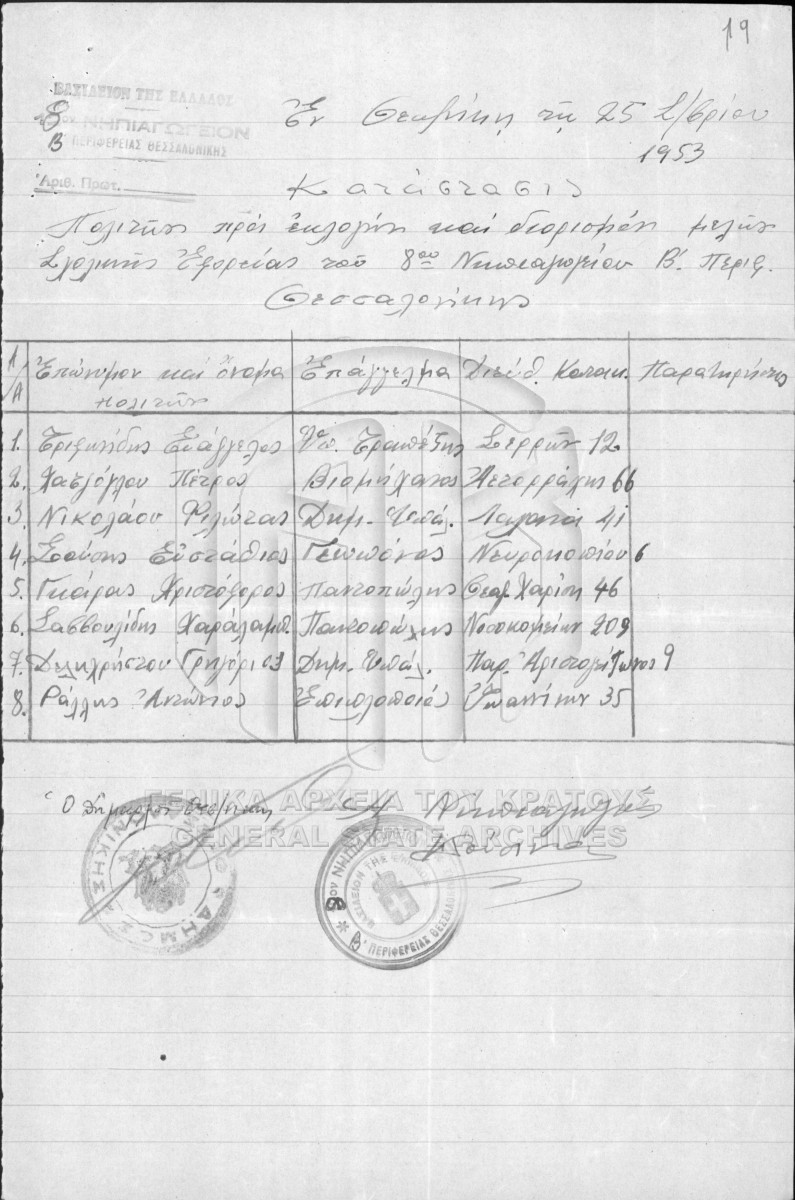 19
ΒΑΣΙΛΕΙΟΝ ΤΗΣ ΕΛΛΑΔΟΣ
8 ον ΝΗΠΙΑΓΩΓΕΙΟΝ
Β' ΠΕΡΙΦΕΡΕΙΑΣ ΘΕΣΣΑΛΟΝΙΚΗΣ
Ἀριθ. Πρωτ.
Ἐν Θεσ/νίκῃ τῇ 25 /βρίου
1953
Κατάστασις
Πολιτῶν πρός ἐκλογήν καί διορισμόν μελῶν
Σχολικῆς Ἐφορείας τοῦ 8ου Νηπιαγωγείου Β'. Περιφ.
Θεσσαλονίκης
Α/Α Ἐπώνυμον καί ὄνομα πολιτῶν Ἐπάγγελμα Διεύθ. Κατοικ. Παρατηρήσεις
1. Εὐάγγελος Τραπέζης Σερρῶν 12
2. Χατζόγλου Πέτρος Βιομήχανος Ἀετορράχης 66
3. Νικολάου Φιλώτας Δημ. Ὑπάλ. 41
4. Εὐστάθιος Γεωπόνος Νευροκοπίου 6
5. Γκάρας Χριστόφορος Παντοπώλης Θεαγ. Χαρίση 46
6. Σαββουλίδης Χαράλαμπ. Παντοπώλης Νοσοκομείων 209
7. Δεληχρήστου Γρηγόριος Δημ. Ὑπάλ. Παρ. Ἀριστογείτωνος 9
8. Ράλλης Ἀντώνιος Ἐπιπλοποιός Ἰωαννίνων 35
Ὁ Δήμαρχος Θεσ/νίκης
Ἡ Νηπιαγωγός
ΓΕΝΙΚΑ ΑΡΧΕΙΑ ΤΟΥ ΚΡΑΤΟΥΣ
GENERAL STATE ARCHIVES
ΔΗΜΟΣ ΘΕΣΣΑΛΟΝΙΚΗΣ
8 ΟΝ ΝΗΠΙΑΓΩΓΕΙΟΝ
Β' ΠΕΡΙΦΕΡΕΙΑΣ ΘΕΣΣΑΛΟΝΙΚΗΣ
ΒΑΣΙΛΕΙΟΝ ΤΗΣ ΕΛΛΑΔΟΣ